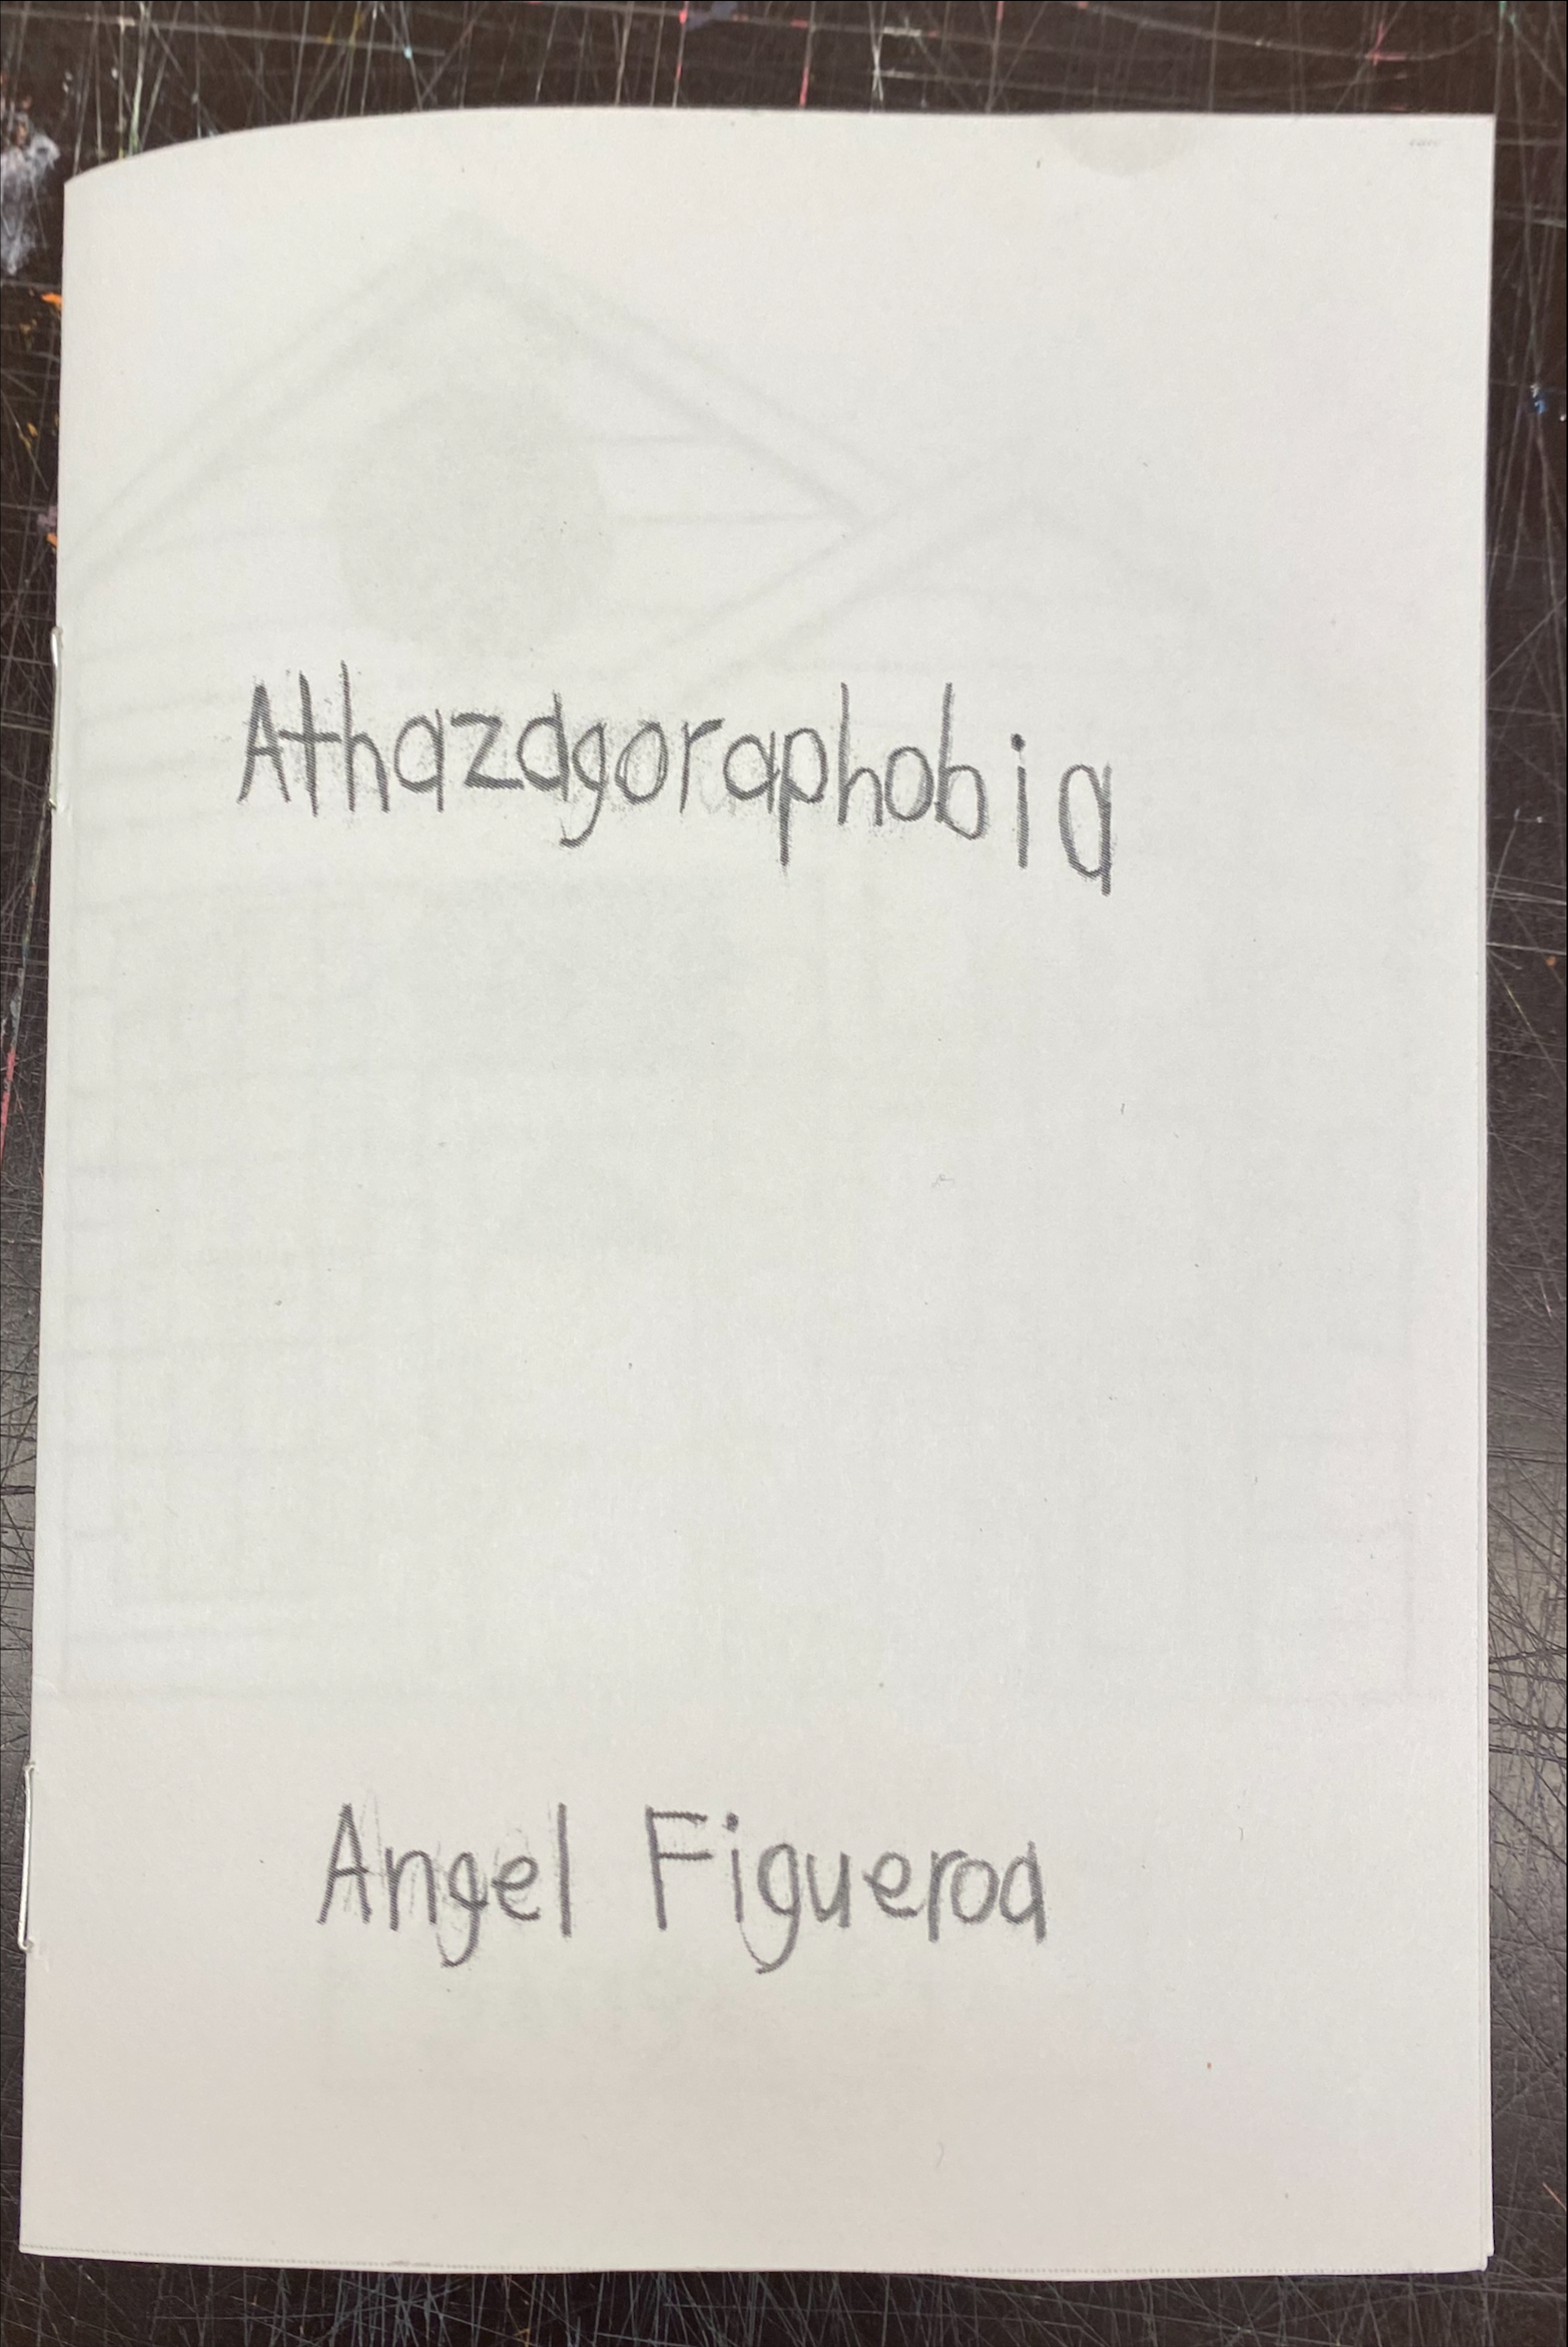 Athazagoraphobia
Angel Figueroa